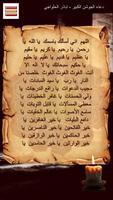 دعاء الجوشن الكبير - اباذر الحلواجي
اللهم اني أسالك باسمك يا الله يا
رحمن يا رحيم يا كريم يا مقيم
يا عظيم يا قديم يا عليم يا حليم
يا حكيم سبحانك يا لا اله الا
انت الغوث الغوث الغوث خلصنا
من النار يا رب يا سيد السادات يا
مجيب الدعوات يا رافع الدرجات
يا ولي الحسنات يا غافر الخطيئات
يا معطي المسألات يا قابل التوبات
يا سامع الاصوات يا عالم الخفيات
يا دافع البليات يا خير الغافرين
يا خير الفاتحين يا خير الناصرين
يا خير الحاكمين يا خير الرازقين
يا خير الوارثين يا خير الحامدين